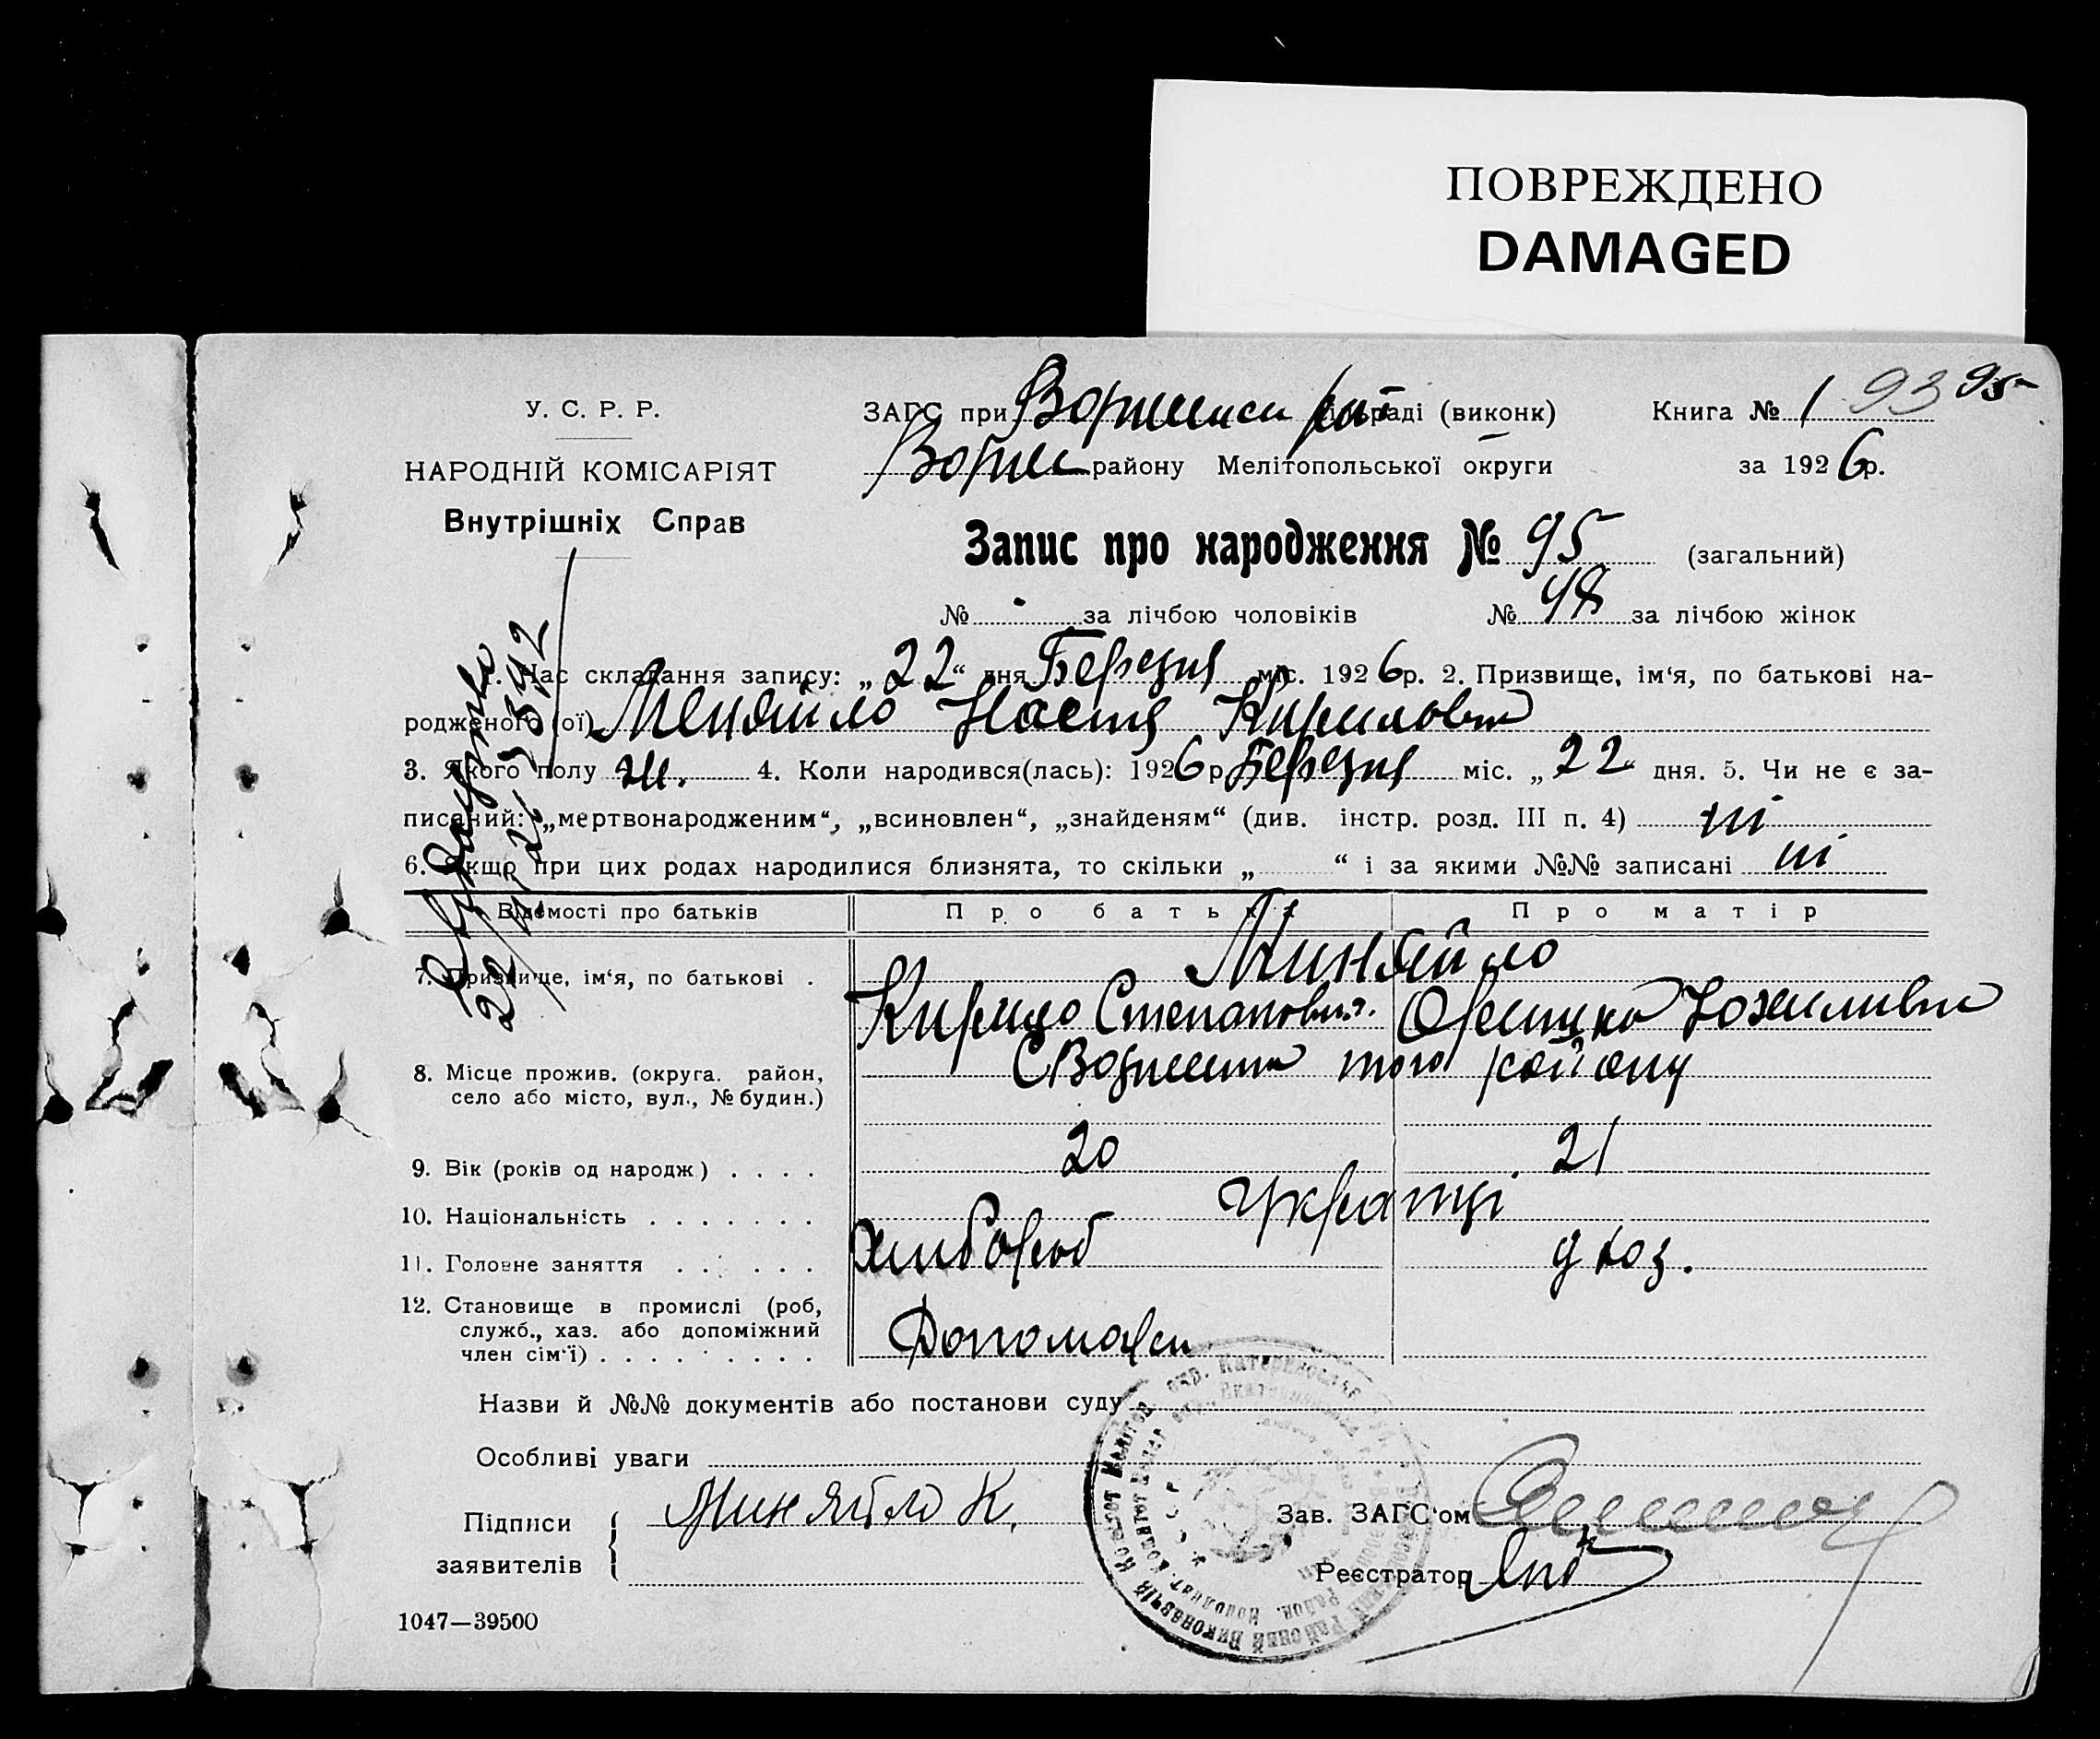 ПОВРЕЖДЕНО
DAMAGED
У. С. Р. Р.
НАРОДНІЙ КОМІСАРІЯТ
Внутрішніх Справ
ЗАГС при раді (виконк)
району Мелітопольської округи
Книга № 1 93 95
за 1926 р.
Запис про народження № 95 (загальний)
№ за лічбою чоловіків № 48 за лічбою жінок
Час складання запису: „22“ дня Березня міс. 1926 р. 2. Призвище, ім‘я, по батькові на-
родженого(ої) Меняйло Настя Кириловна
3. Якого полу ж. 4. Коли народився(лась): 1926 р. Березня міс. „22“ дня. 5. Чи не є за-
писаний: „мертвонародженим“, „всиновлен“, „знайденям“ (див. інстр. розд. III п. 4) ні
6. Якщо при цих родах народилися близнята, то скільки „ “ і за якими №№ записані ні
Відомості про батьків Про батька Про матір
Миняйло
7. Призвище, ім‘я, по батькові . Кирило Степанович
8. Місце прожив. (округа. район, того району
село або місто, вул., № будин.)
9. Вік (років од народж.) . . . . 20 21
10. Національність . . . . . . . Українці
11. Головне заняття . . . . . . хлібороб д хоз.
12. Становище в промислі (роб,
служб., хаз. або допоміжний
член сім‘ї) . . . . . . . . .
Назви й №№ документів або постанови суду
Особливі уваги
Підписи
заявителів
Миняйло К.
Зав. ЗАГС‘ом
Реєстратор
1047—39500